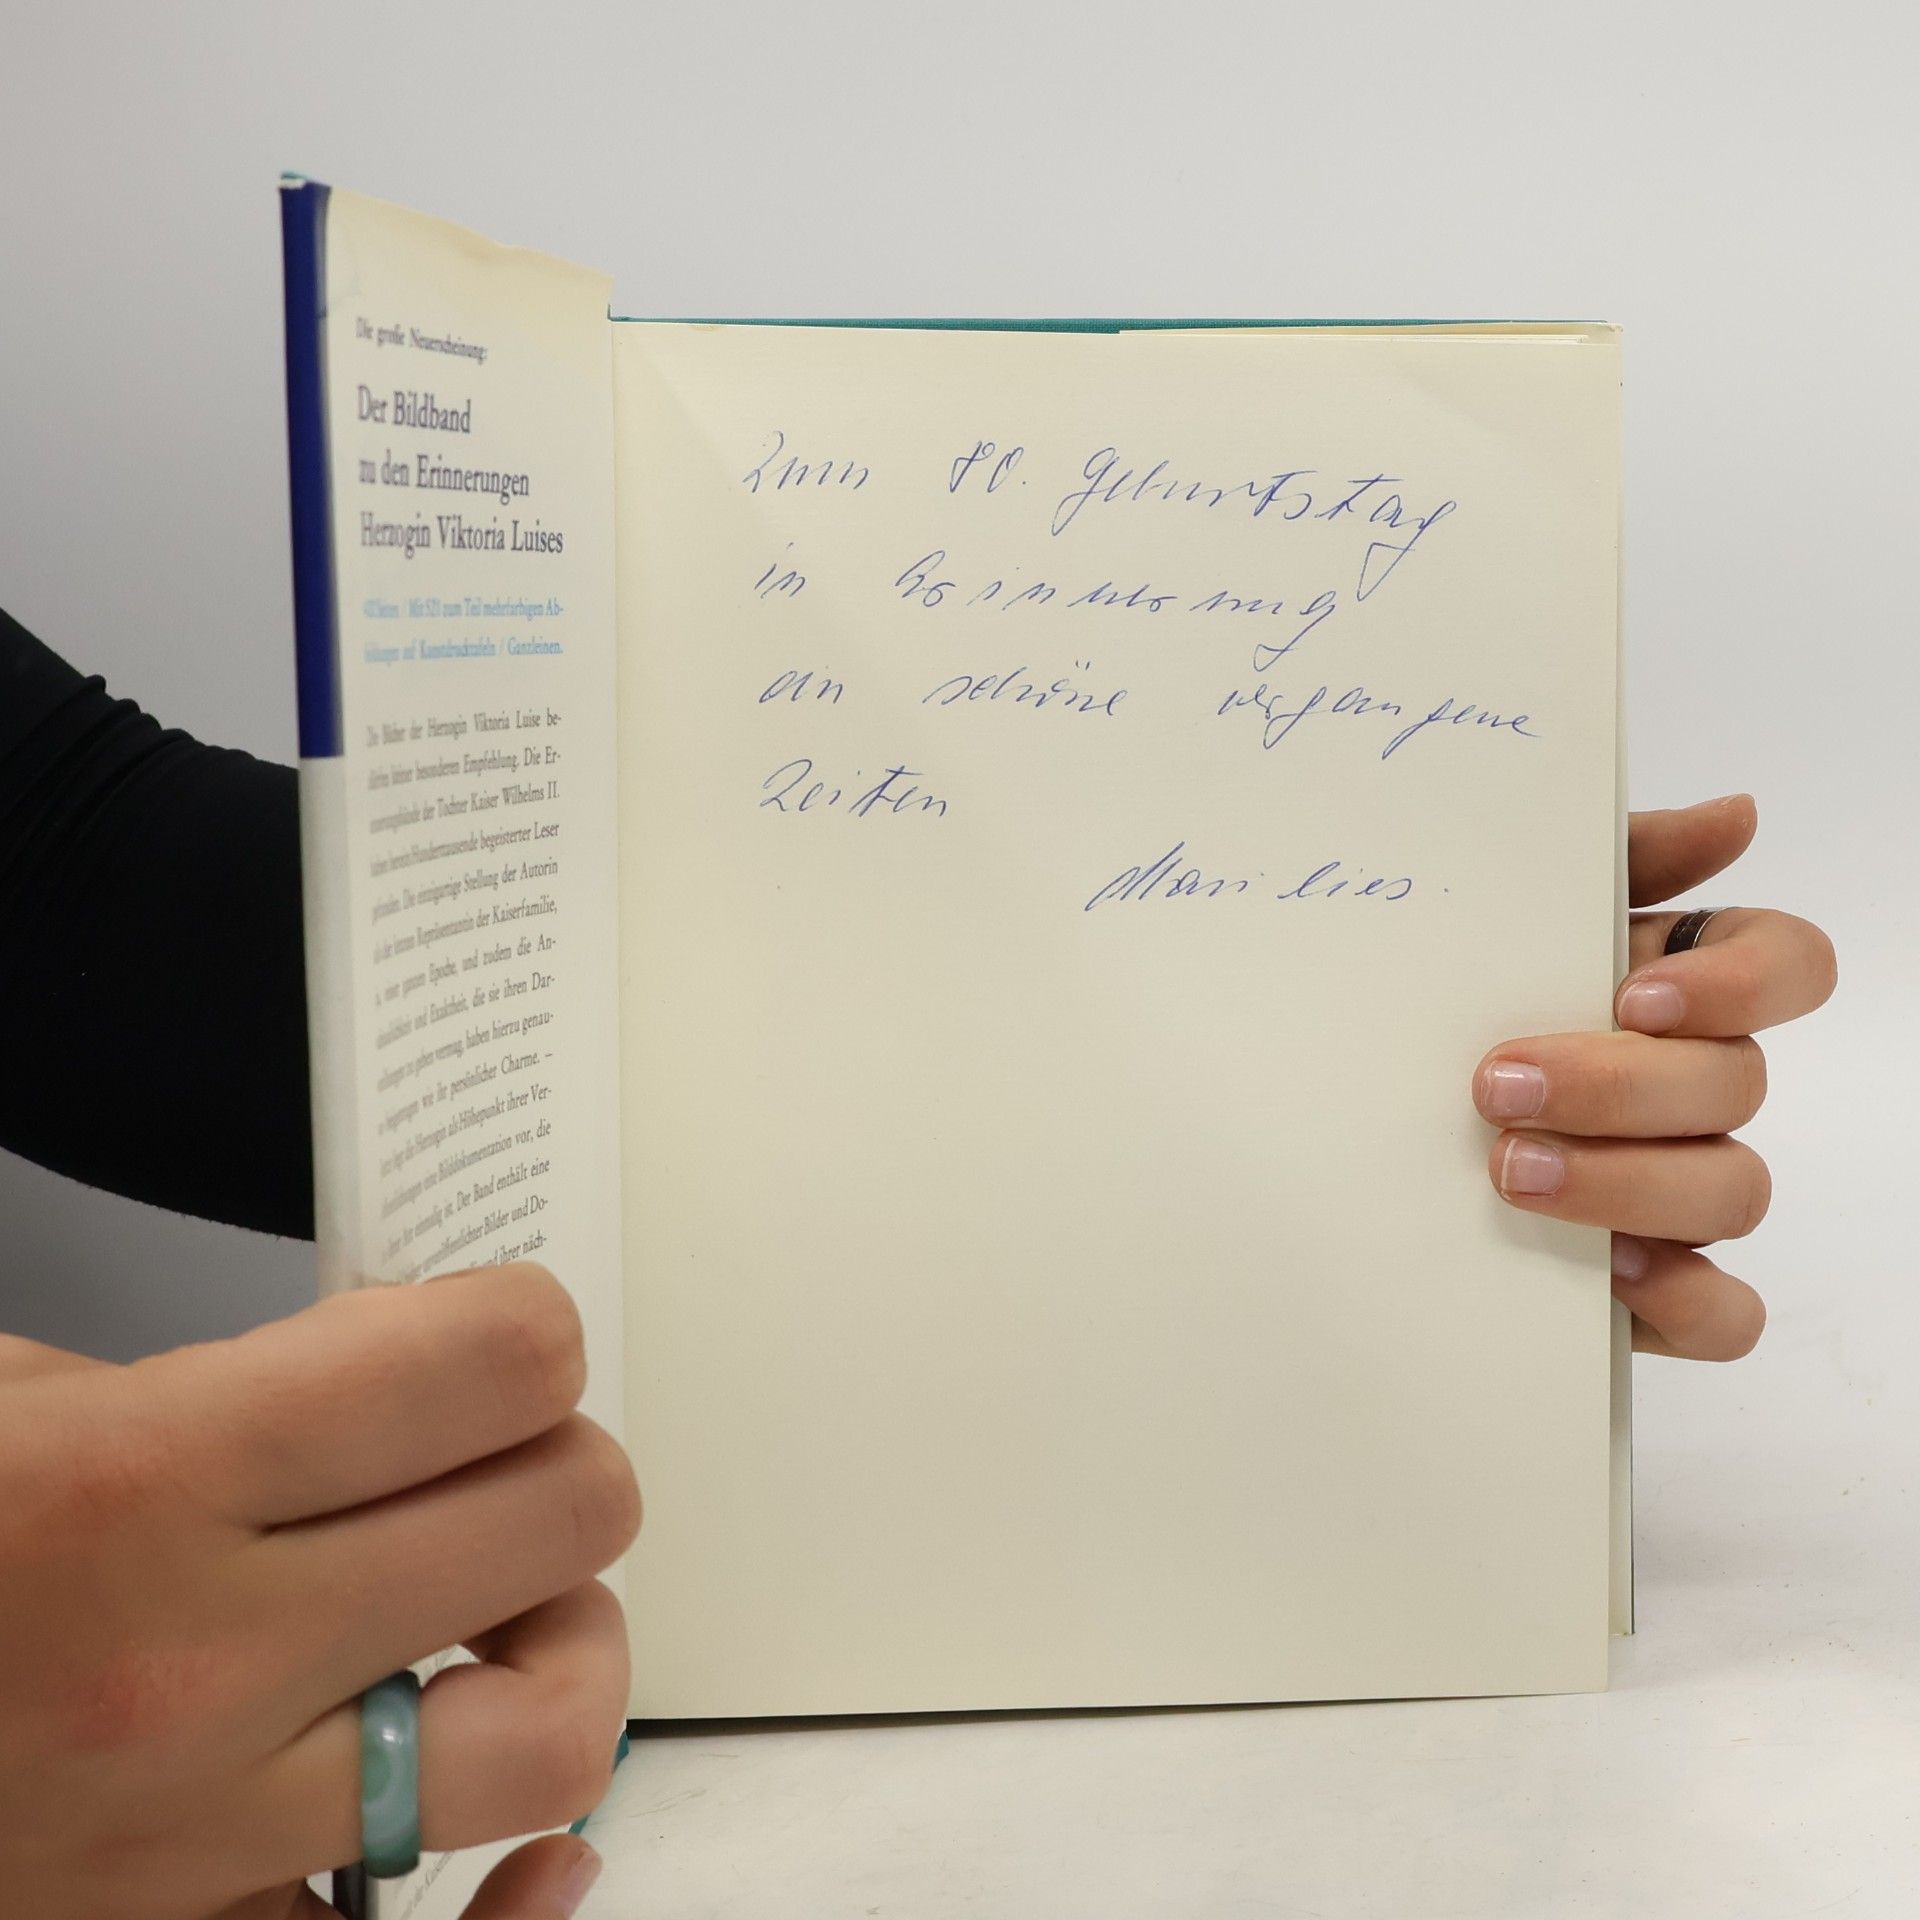 Die große Neuerscheinung:
Der Bildband
zu den Erinnerungen
Herzogin Viktoria Luises
Seiten / Mit 521 zum Teil mehrfarbigen Ab-
bildungen auf Kunstdrucktafeln / Ganzleinen.
Die Bücher der Herzogin Viktoria Luise be-
dürfen keiner besonderen Empfehlung. Die Er-
innerungsbände der Tochter Kaiser Wilhelms II.
haben bereits Hunderttausende begeisterter Leser
gefunden. Die einzigartige Stellung der Autorin
als der letzten Repräsentantin der Kaiserfamilie,
einer ganzen Epoche, und zudem die An-
schaulichkeit und Exaktheit, die sie ihren Dar-
stellungen zu geben vermag, haben hierzu genau-
so beigetragen wie ihr persönlicher Charme. –
legt die Herzogin als Höhepunkt ihrer Ver-
öffentlichungen eine Bilddokumentation vor, die
in ihrer Art einmalig ist. Der Band enthält eine
bisher unveröffentlichter Bilder und Do-
und ihrer näch-
Zum 80. Geburtstag
in Erinnerung
an schöne vergangene
Zeiten
Marilies.